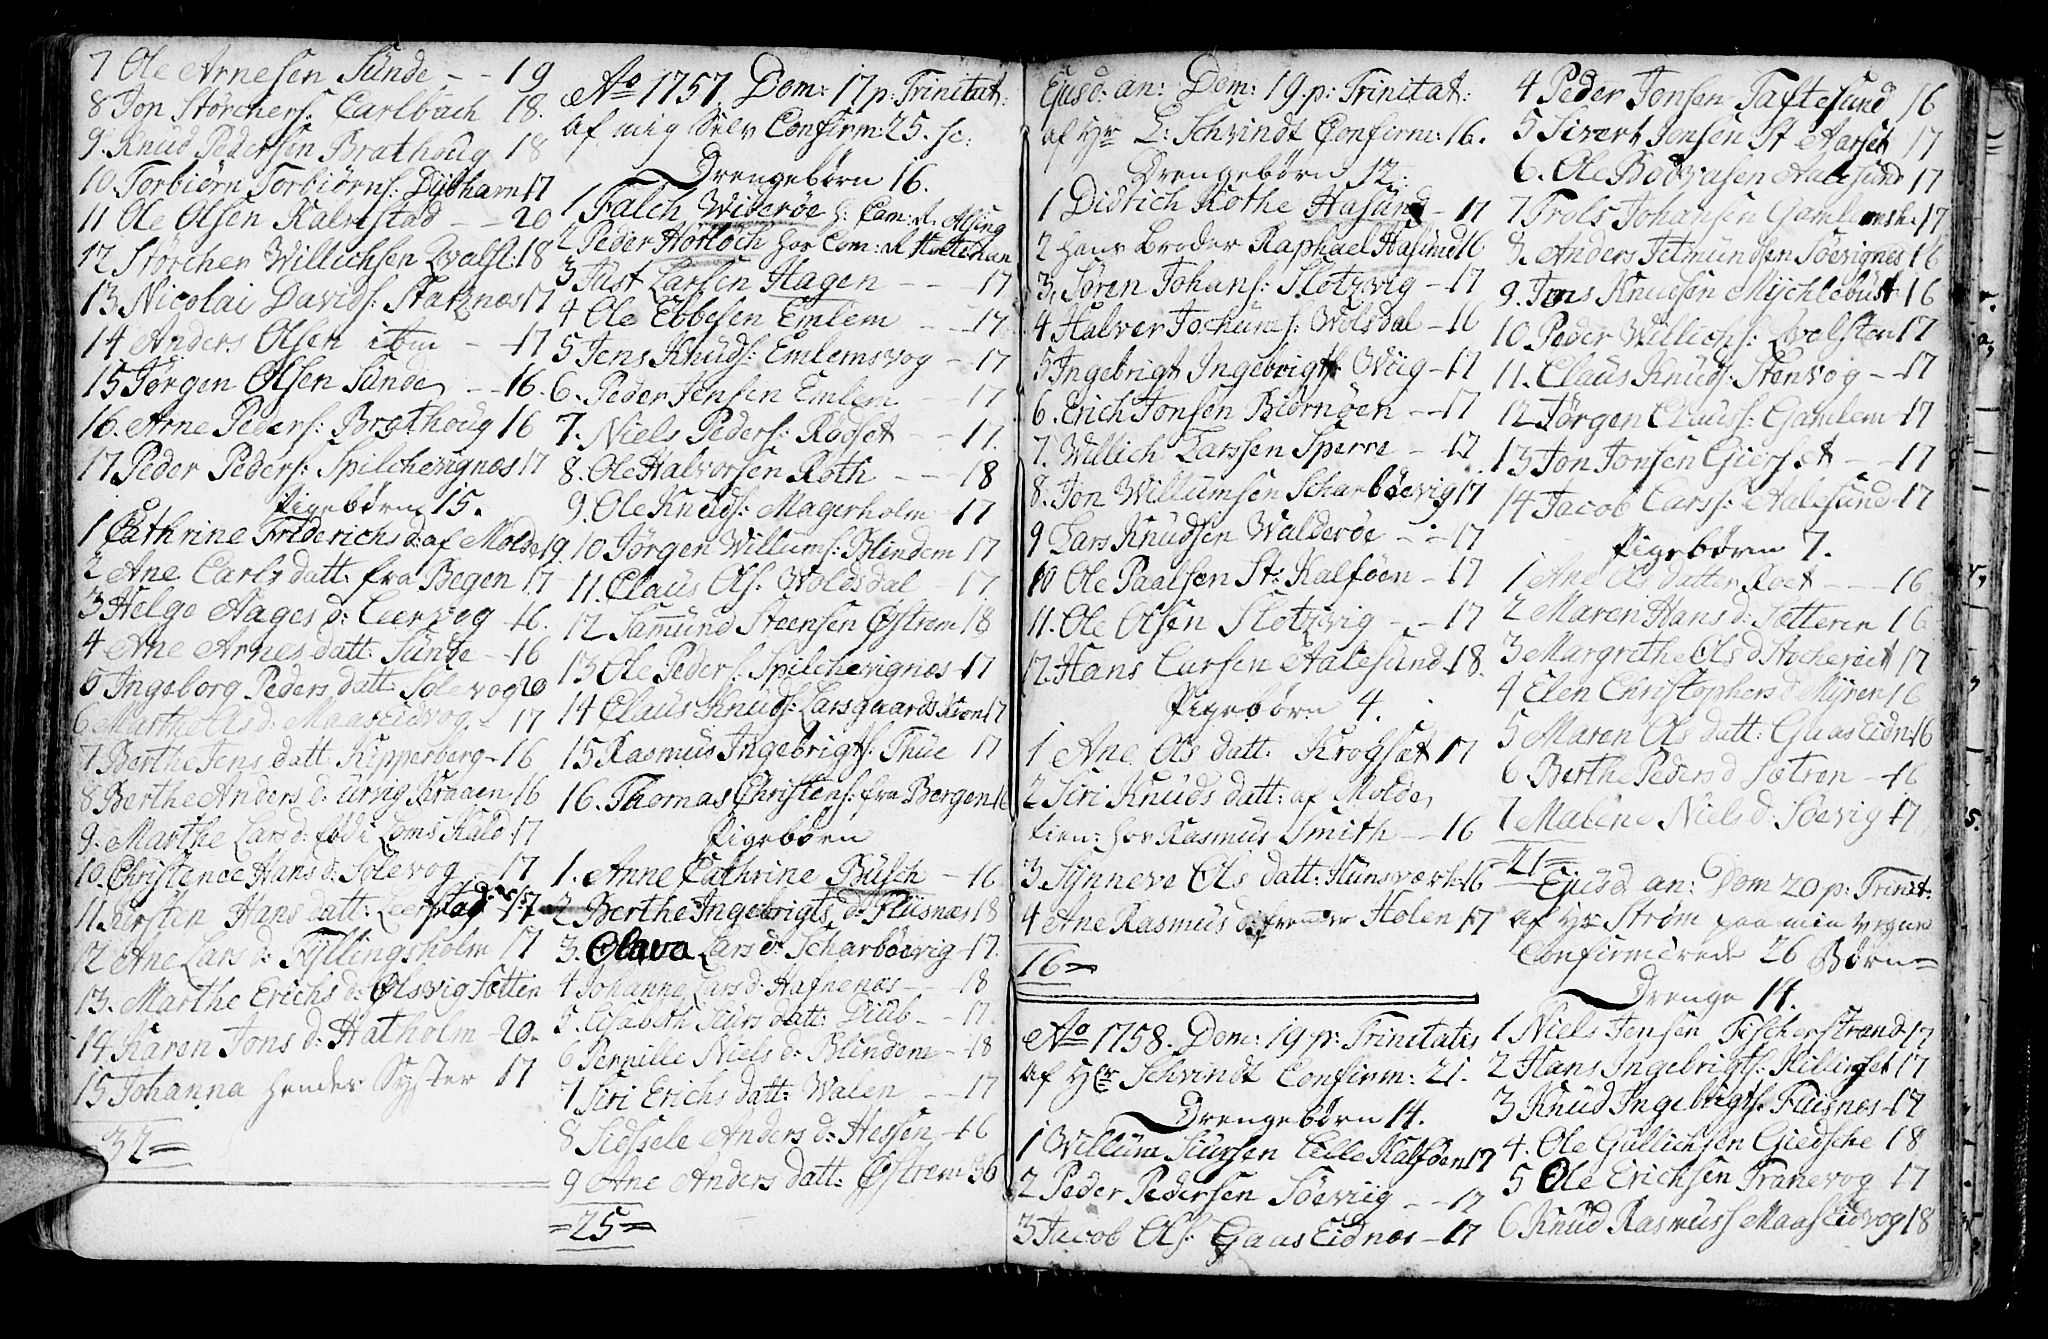 7 Ole Arnesen Sunde - - 19
8 Jon Störchers: Carlbach 18.
9. Knud Pedersen Brathoug 18
10. Torbiörn Torbiörns: Dybhavn 17
11 Ole Olsen Kalvestad - - 20
12 Störcher Willichsen Qvalst: 18
13. Nicolai Davids: Statznæs 17
14 Anders Olsen ibm - 17
15 Jørgen Olsen Sunde - 16.
16. Arne Peders: Brathoug 16
17 Peder Peders: Spilchevignæs 17
Pigebørn 15.
1 Cathrine Friderichs d: af Molde 19.
2 Ane Carls datt: fra Bergen 17
3 Helge Aages d: Leervog 16.
4 Ane Arnes datt: Sunde - 16
5 Ingeborg Peders datt: Solevog 20
6 Marthe Ols d: Maaseidvog - 17
7 Berthe Jens datt: Kipperberg - 16
8 Berthe Anders d: Ursvig Kraaen 16
9. Marthe Lars d: fød i Loms Kald 17
10. Christence Hans d: Solevog - 17
11. Kirsten Hans datt: Leerstad - 17
2 Ane Lars d: Fyllingsholm 17
13. Marthe Erichs d: Olsvig Setten
14 Karen Jons d: Hatholm - 20.
15 Johanna hendes Syster 17
32 =
Ao 1757 Dom: 17 p: Trinitat:
af mig Selv Confirm: 25. sc:
Drengebørn 16.
1 Falch Widerøe h: Cam: d. Alsing
2 Peder Hotloch hos Com: d. Holterman
3 Just Larsen Hagen - - 17
4 Ole Ebbesen Emlem - - 17
5 Jens Knuds: Emlemsvog - 17
6. Peder Jensen Emlem - 17
7. Niels Peders: Rödset - - 17.
8. Ole Halvorsen Roth - - 18
9. Ole Knuds: Magerholm - 17
10 Jörgen Willums: Blindem 17
11. Claus Ols: Woldsdal - 17.
12 Samund Steensen Østrem 18
13 Ole Peders: Spilchevignæs 17
14 Claus Knuds: Larsgaards 17
15 Rasmus Ingebrigts: Thue 17
16. Thomas Christens: fra Bergen 16
Pigebørn
1. Anne Cathrine Busch - 16
2 Berthe Ingebrigts d: Fliisnæs 18
3. Olava Lars d: Scharbövig - 17.
4 Johanne Lars d: Hafnenæs - - 18
5. Lisabeth Siurs datt: Diub - - 17
6 Pernille Niels d: Blindem - 18
7 Siri Erichs datt: Walen - - 17
8 Sidssele Anders d: Hessen - 16
9 Ane Anders datt: Østrem 36
= 25 =
Ejusd: an: Dom: 19. p: Trinitat:
af Hr L: Schvindt Confirm: 16.
Drengebørn 12:
1 Didrich Rothe Hasund - 17
2 hans Broder Raphael Hasund 16
3. Søren Johans: Slotzvig - 17
4 Halver Jochums: Wolsdal - 16
5 Ingebrigt Ingebrigts: Wiig - 17
6. Erich Jonsen Biörnöen - - 17
7. Willich Larssen Sperre - 17
8. Jon Willumsen Scharböevig 17
9 Lars Knudsen Walderöe - - 17
10 Ole Paalsen St: Kalföen - 17
11. Ole Olsen Slotzvig - - 17
12. Hans Larsen Aalesund - 18.
Pigebørn 4.
1 Ane Ols datt: Krogsæt 17
2 Siri Knuds datt: af Molde,
tien: hos Rasmus Smith - - 16
3 Synneve Ols datt: Hunsværk 16
4 Ane Rasmus d: Holen 17
16 =
Ao 1758. Dom: 19 p: Trinitatis
af Hr Schvindt Confirm: 21.
Drengebørn 14.
1 Willum Siursen Lille Kalföen 17
2 Peder Pedersen Söeviig - - 17
3 Jacob Ols: Gaas Eidnæs - 17
4 Peder Jonsen Taftesund 16
5 Sivert Jonsen St Aarset 17
6. Ole Aalesund 17
7 Trols Johansen 17
8. Anders Jetmundsen Söevignes 16
9. Jens Knudsen Mychlebust 16
10 Peder Willichs: Qvalsten 17
11. Claus Knuds: Stenvog - 17
12 Jørgen Clauss: Gamlem 17
13 Jon Jonsen Gierset - - 17
14 Jacob Larss: Aalesund 17
Pigebørn 7.
1 Ane Ols datter Roet - - - 16
2 Maren Hans d: Sætteren 16
3 Margrethe Ols d 17
4 Elen Christophers d Myren 16
5 Maren Ols datt: Gaas Eidn: 16
6 Berthe Peders d Sætren - 16
7 Malene Niels d: Söevig 17
21 =
Ejusd an: Dom 20 p: Trinit:
af Hr Strøm paa min vegne
Confirmerede 26 Børn =
Drenge 14.
1 Niels Jensen Fischerstrand 17
2 Hans Ingebrigts: Hillingset 17
3 Knud Ingebrigts: Fliisnæs 17
4. Ole Gullichsen Giedsche 18
5 Ole Erichsen Tranevog 17
6 Knud Rasmuss Maas Eidvog 18